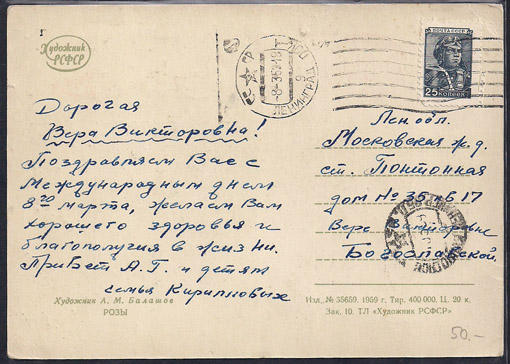 Художник
РСФСР
ПОЧТА СССР
25 КОПЕЕК
ЛЕНИНГРАД
Дорогая
Вера Викторовна!
Поздравляем Вас с
Международным днем
8го марта, желаем Вам
хорошего здоровья и
благополучия в жизни.
Привет А.Г. и детям
семья Кирилловых
Лен обл.
Московская ж.д.
ст. Понтонная
дом № 36 кв 17
Вере Викторовне
Богославской.
Художник А. М. Балашов
РОЗЫ
Изд. № 35659. 1959 г. Тир. 400 000. Ц. 20 к.
Зак. 10. ТЛ «Художник РСФСР»
50.-